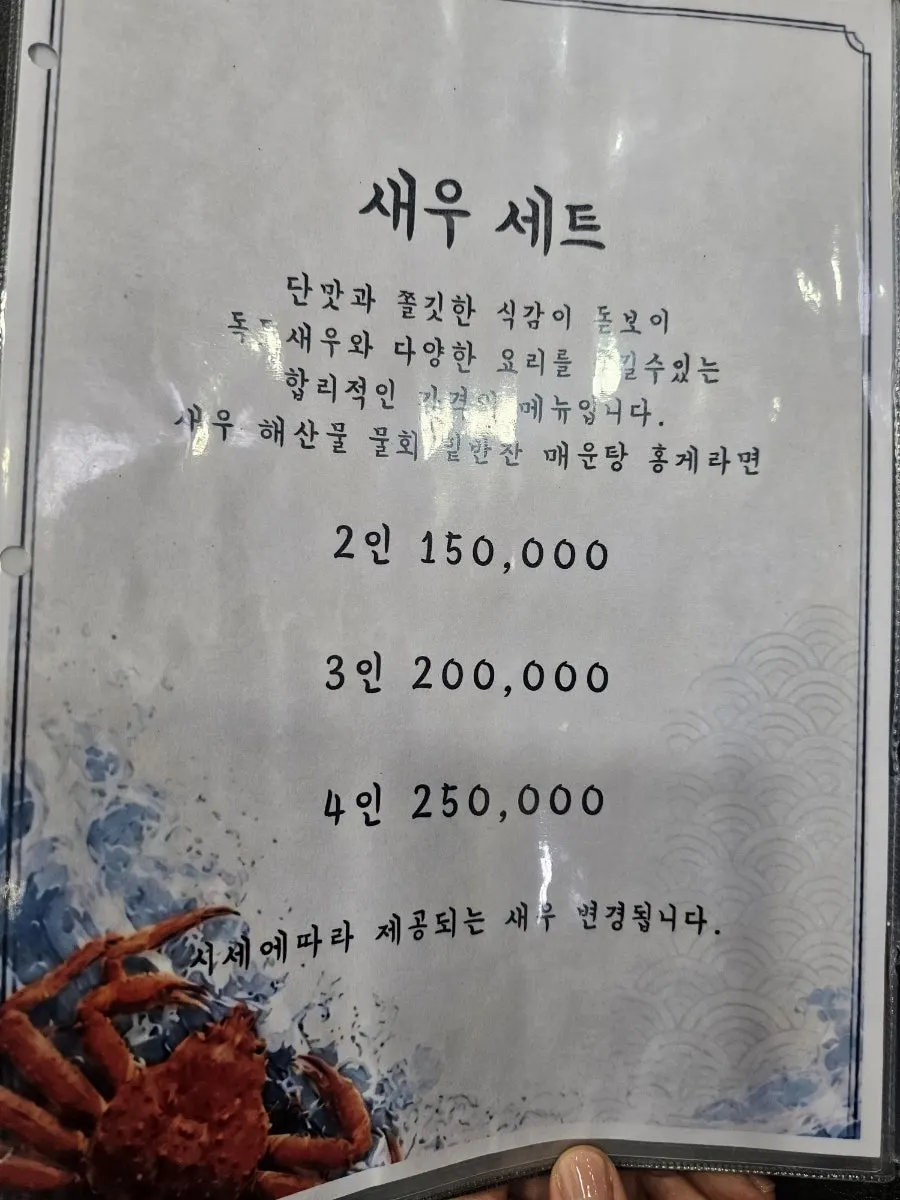 새우 세트
단맛과 쫄깃한 식감이 돋보이
새우와 다양한 요리를
합리적인 가격의 메뉴입니다.
새우 해산물 물회 밑반찬 매운탕 홍게라면
2인 150,000
3인 200,000
4인 250,000
시세에따라 제공되는 새우 변경됩니다.